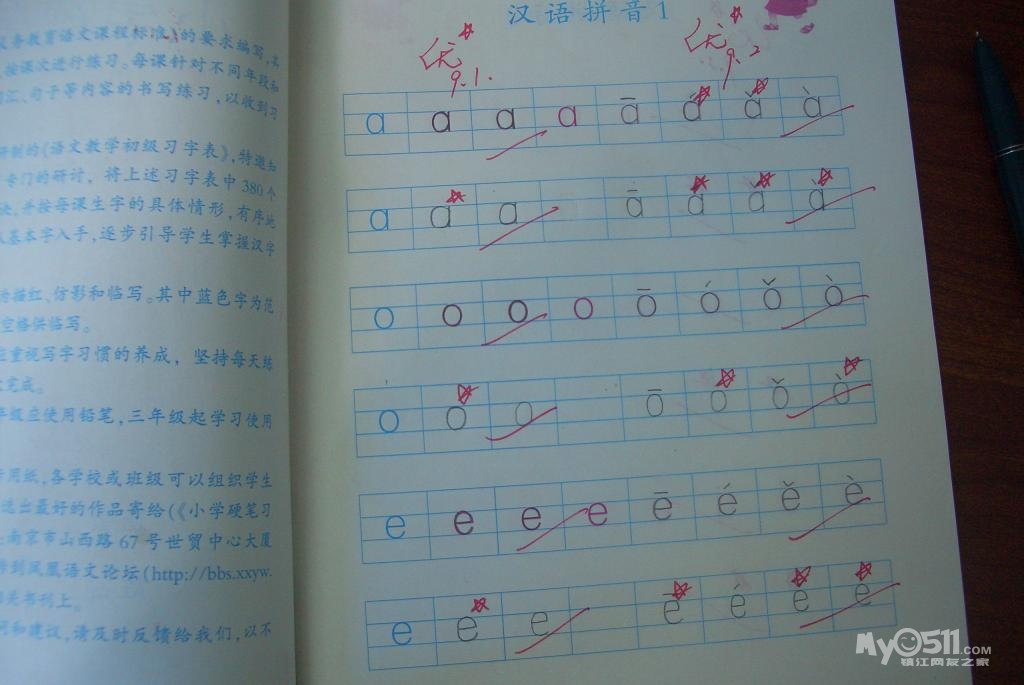 义务教育语文课程标准》的要求编写,
按课次进行练习。每课针对不同年段和
词汇、句子等内容的书写练习,以收到习
研制的《语文教学初级习字表》,特邀知
专门的研讨,将上述习字表中380个
并按每课生字的具体情形,有序地
从基本字入手,逐步引导学生掌握汉字
描红、仿影和临写。其中蓝色字为范
空格供临写。
重视写字习惯的养成,坚持每天练
完成。
年级应使用铅笔,三年级起学习使用
用纸,各学校或班级可以组织学生
选出最好的作品寄给(《小学硬笔习
南京市山西路67号世贸中心大厦
到凤凰语文论坛(http://bbs.xxyw.
相关书刊上。
问和建议,请及时反馈给我们,以不
汉语拼音1
优 优
9.1. 9.2
a a a a ā á ǎ à
a a a ā á ǎ à
o o o o ō ó ǒ ò
o o o ō ó ǒ ò
e e e e ē é ě è
e e e ē é ě è
My0511.COM
镇江网友之家